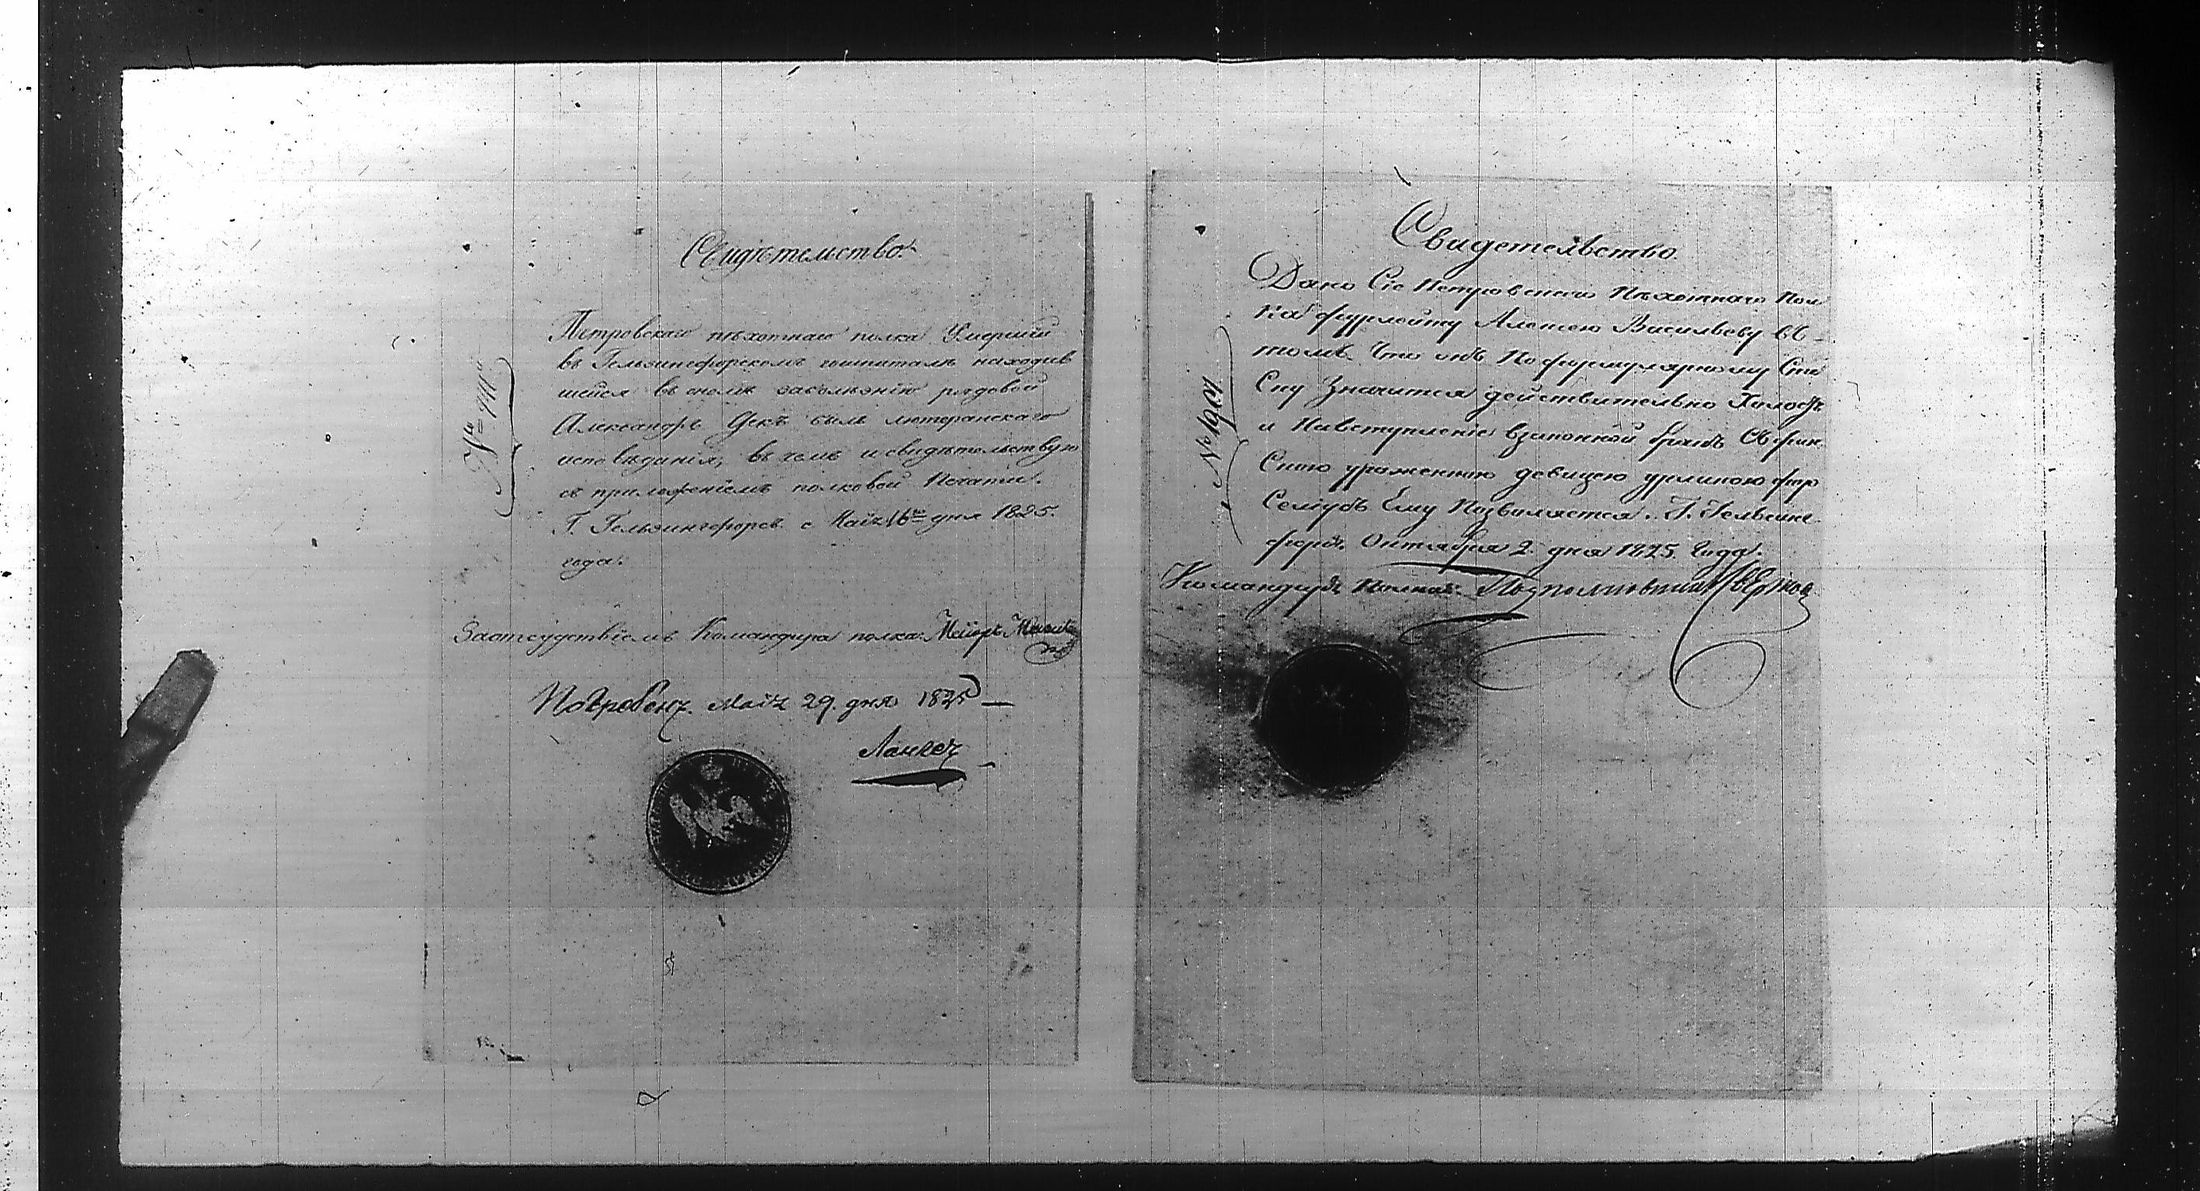 Свидѣтельство.
Петровскаго пѣхотнаго полка Умершій
въ Гельзингфорскомъ гошпиталѣ находив
шейся въ ономъ заболѣзнію рядовой
Александръ былъ лютеранскаго
исповѣданія, въ чемъ и свидѣтельствую
съ приложеніемъ полковой Печати.
Г. Гельзингфорсъ. Маія 16го дня 1825
года.
Заотсудствіемъ Командира полка Маіоръ
Погребенъ. Маія 29. дня 1825
Свидетельство.
Дано Сіе Петровскаго Пѣхотнаго Пол
ка фурлейту Алексею Васильеву въ
томъ Что онъ По формулярному Спи
ску Значится действительно Холостъ
и Навступленіе взаконной бракъ Съ фин
скою уроженкою девицею
Ему Позволяется. Г. Гельсинг
форсъ. Октября 2. дня 1825. Года.
Командиръ Полка Подполковникъ